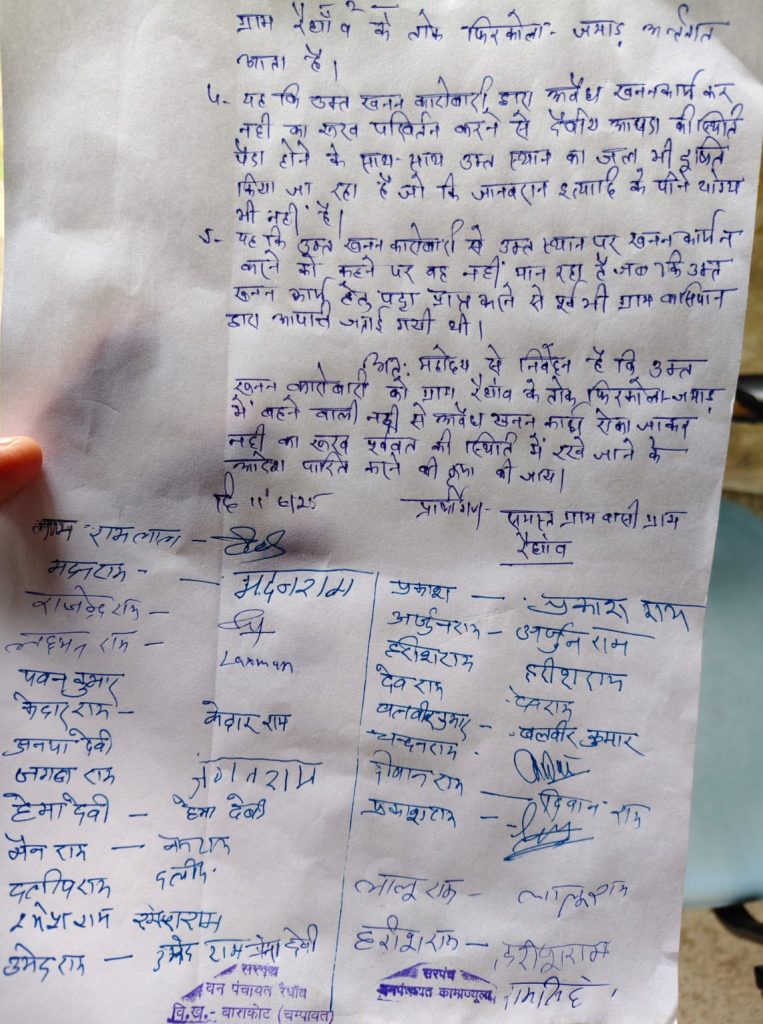 - 2 -
ग्राम रैघाँव के तोक फिरकोला- जमाड़ अर्न्तगत
आता है।
4- यह कि उक्त खनन कारोबारी द्वारा अवैध खननकार्य कर
नदी का रूख परिवर्तन करने से दैवीय आपदा की स्थिति
पैदा होने के साथ-साथ उक्त स्थान का जल भी दूषित
किया जा रहा है जो कि जानवरान इत्यादि के पीने योग्य
भी नहीं है।
5- यह कि उक्त खनन कारोबारी से उक्त स्थान पर खनन कार्य न
करने को कहने पर वह नहीं मान रहा है जब कि उक्त
खनन कार्य हेतु पट्टा प्राप्त करने से पूर्व भी ग्राम वासियान
द्वारा आपत्ति जताई गयी थी।
अतः महोदय से निवेदन है कि उक्त
खनन कारोबारी को ग्राम रैघाँव के तोक फिरकोला-जमाड़
में बहने वाली नदी से अवैध खनन कार्य रोका जाकर
नदी का रूख पूर्ववत की स्थिति में रखे जाने के
आदेश पारित करने की कृपा की जाय।
दि 11 6/25 प्रार्थीगण- समस्त ग्राम वासी ग्राम
रैघाँव
नाम- रामलाल -
मदनराम - मदनराम
राजेन्द्र राम -
लक्ष्मन राम - Laxman
पवन कुमार
केदार राम - केदार राम
अनपा देवी
जगत राम जगतराम
हेमा देवी - हेमा देवी
नैन राम - नैनराम
दलीपराम दलीप
रमेश राम रमेशराम
उमेद राम - उमेद राम हेमा देवी
प्रकाश - प्रकाश राम
अर्जुनराम - अर्जुन राम
हरीशराम हरीशराम
देव राम देवराम
बलवीर कुमार - बलवीर कुमार
चन्दनराम
दीवान राम - दिवान राम
प्रकाशराम -
लालू राम - लालूराम
हरीशराम - हरीशराम
रामसिंह
सरपंच
वन पंचायत रैघाँव
वि.ख.- बाराकोट (चम्पावत)
सरपंच
वनपंचायत कामाज्यूला